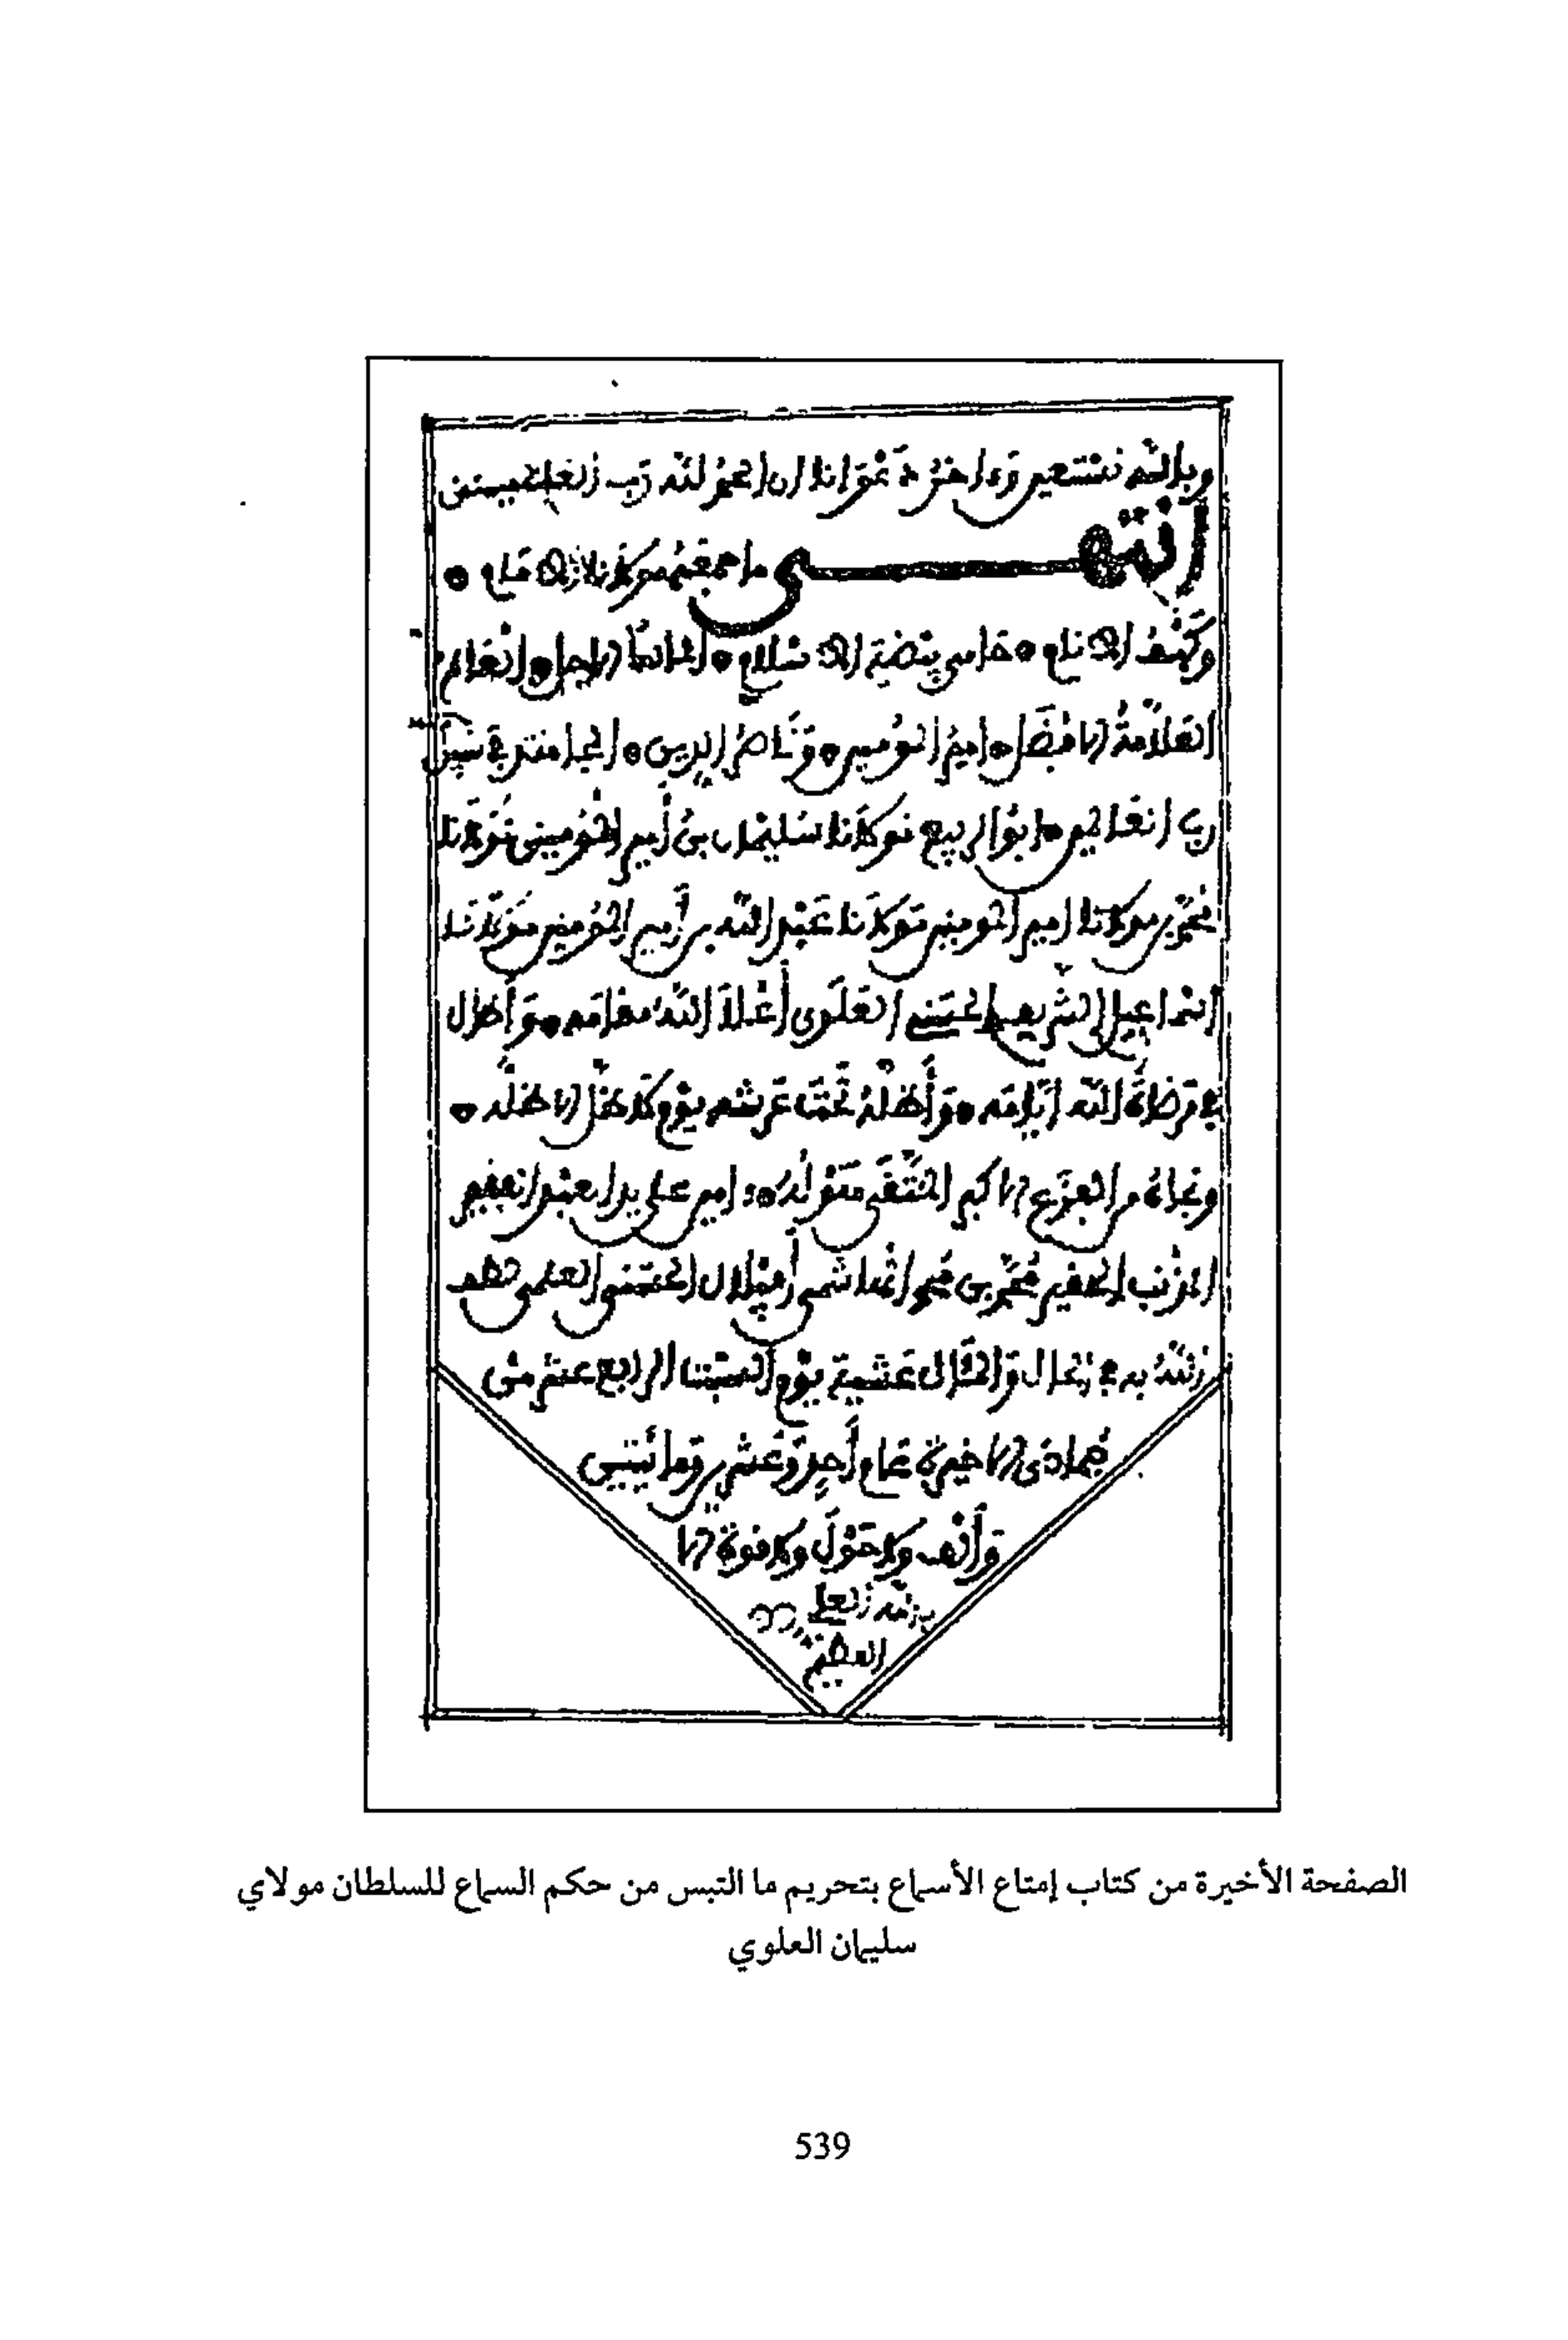 وبالله نستعين وءاخر دعوانا ان الحمد لله رب العلمين
انتهى ما جمعه مولانا الامام
وكهف الانام حامي بيضة الاسلام
العلامة الافضل امير المومنين وناصر الدين المجاهد في سبيل
رب العالمين ابو الربيع مولانا سليمان بن أمير المومنين مولانا
محمد بن مولانا امير المومنين مولانا عبد الله بن أمير المومنين مولانا
اسماعيل الشريف الحسني العلوي أعلا الله مقامه وأطال
في مرضاة الله أيامه وأظله تحت عرشه يوم لا ظل الا ظله
ونجاه من الفزع الاكبر امين على يد العبد الفقير
المذنب الحقير محمد بن الهاشمي الحسني العلمي لطف
الله به في الحال والمئال عشية يوم السبت الرابع عشر من
جمادى الاخيرة عام أحد وعشرين ومائتين
وألف ولا حول ولا قوة الا
بالله العلي
العظيم
الصفحة الأخيرة من كتاب إمتاع الأسماع بتحريم ما التبس من حكم السماع للسلطان مولاي
سليمان العلوي
539